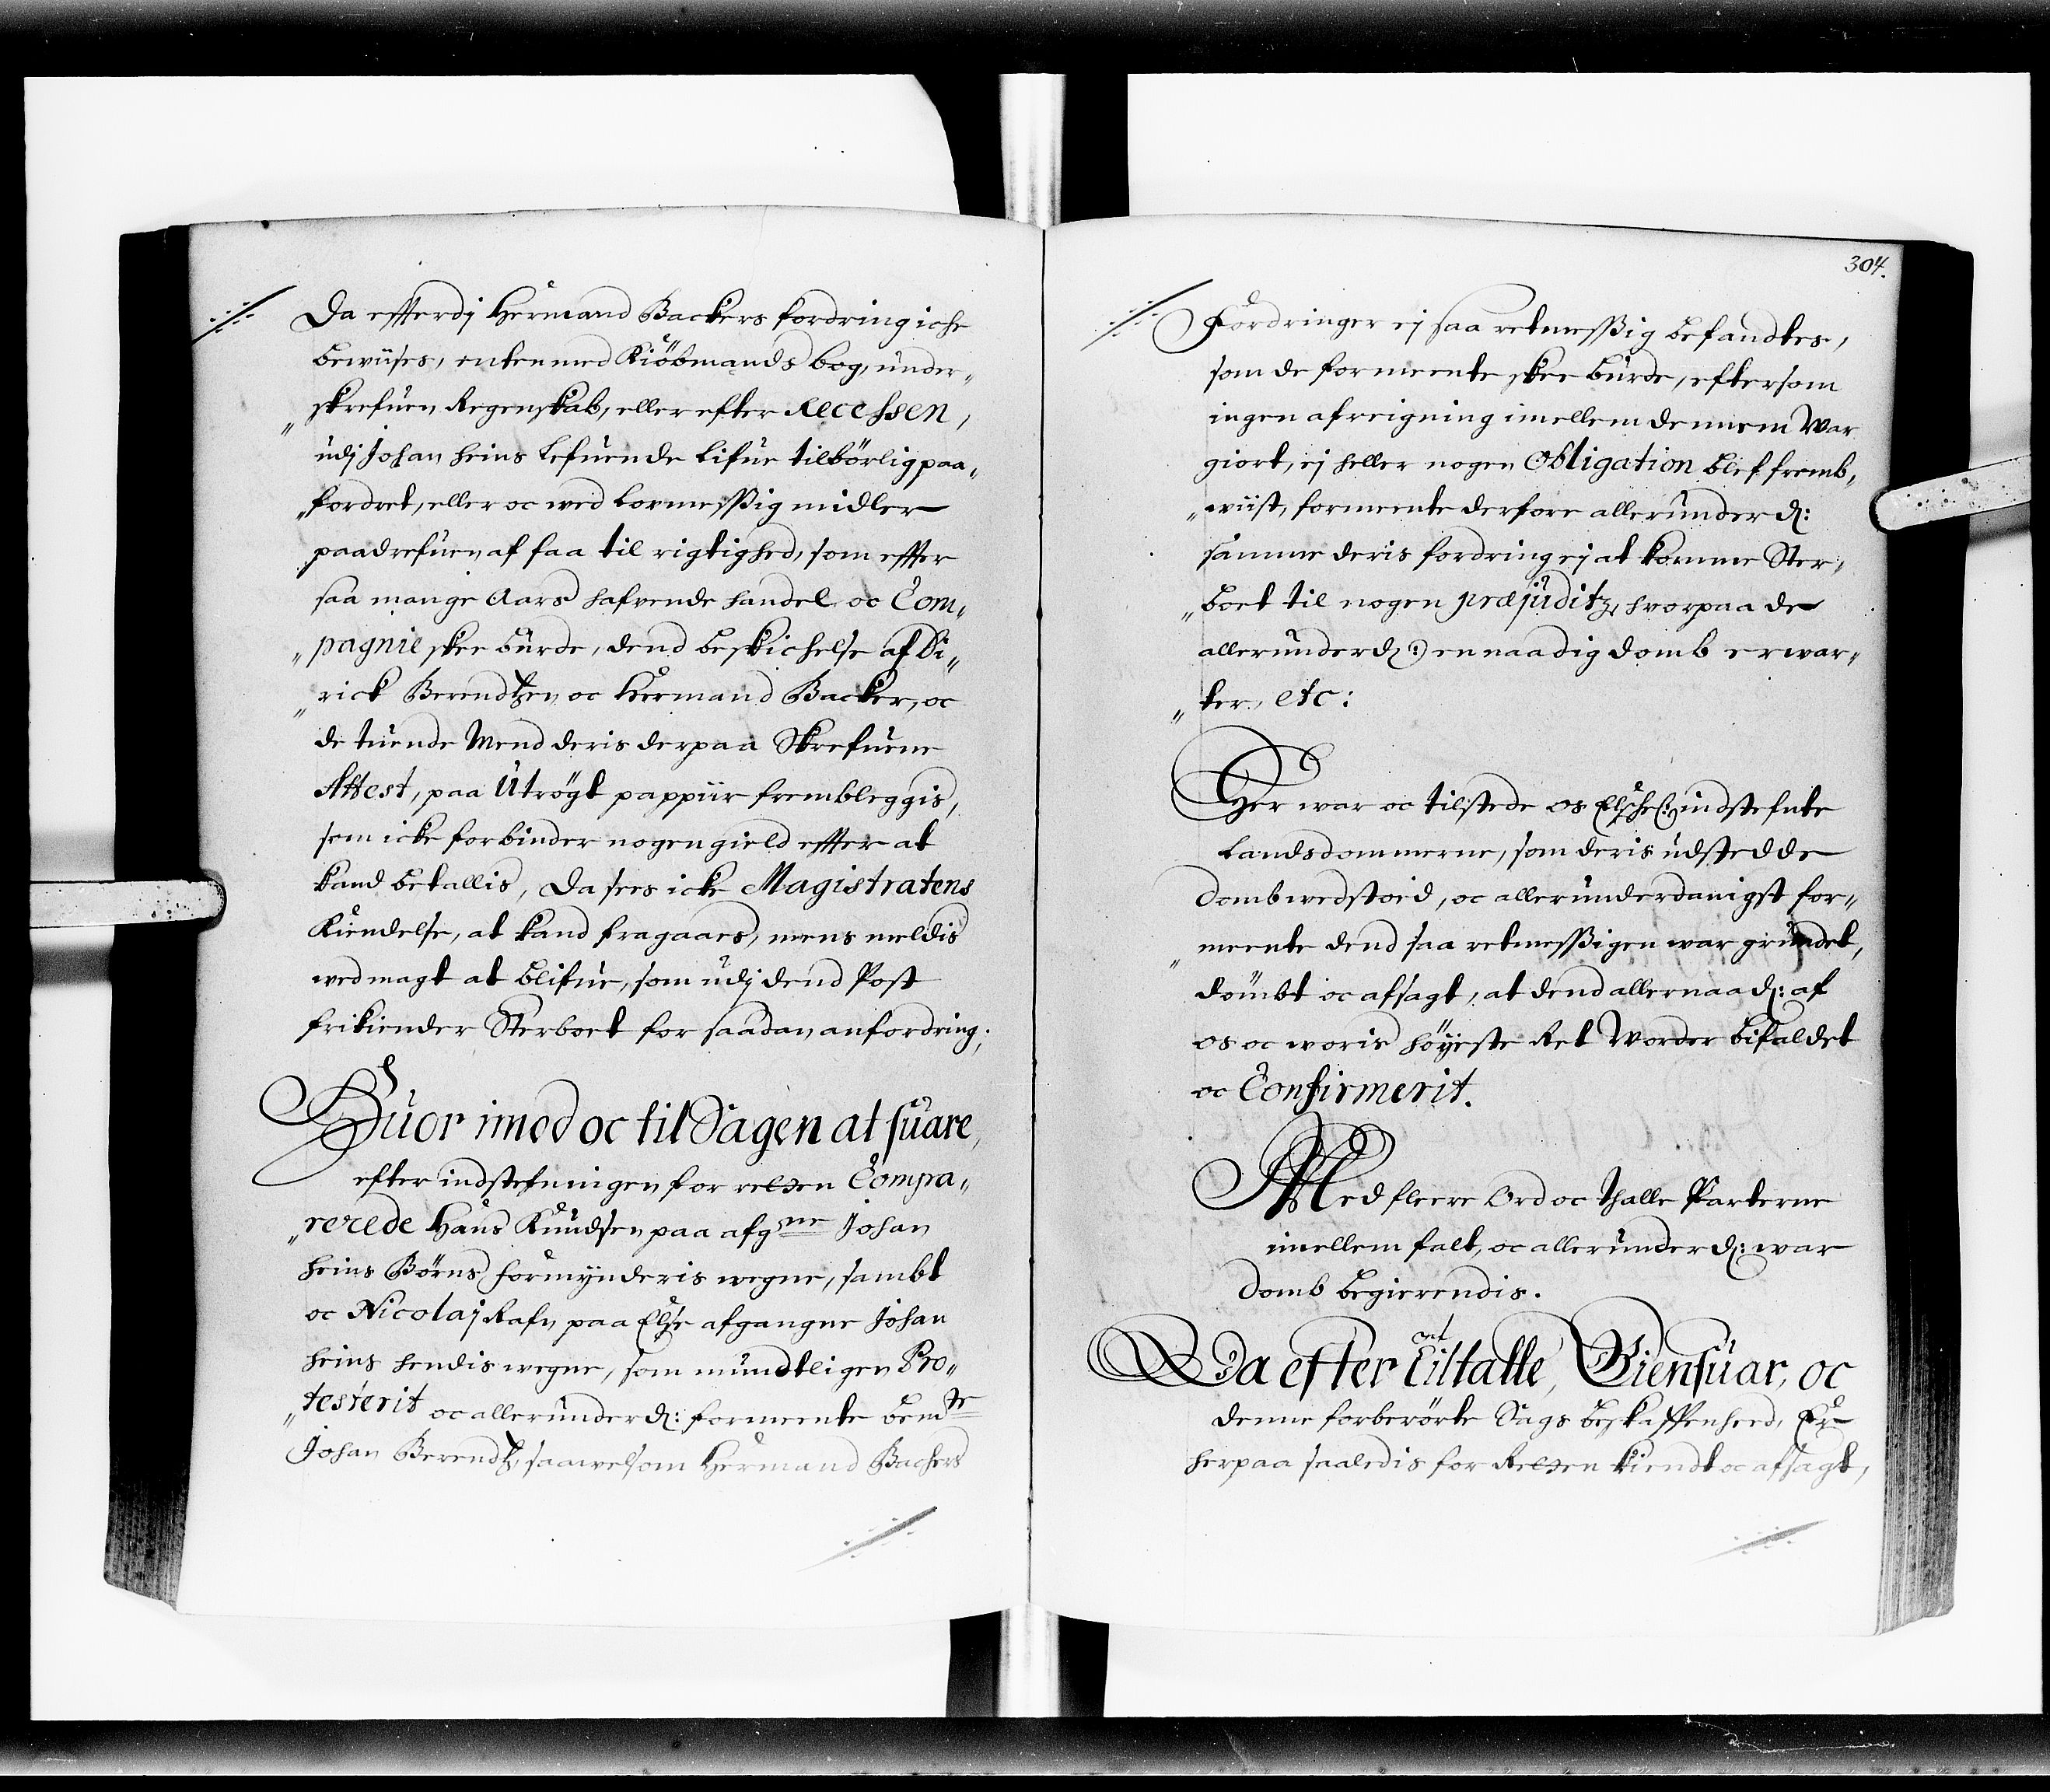 Da efferdj Hermand Backers fordring iche
bewüses, enten med Kiöbmands bog, under„
„skrefuen Regenskab, eller efter Recessen,
udj Johan Heins Lefuende Lifue tilbörlig paa„
„fordret, eller oc wed Lowmessig midler
paadrefuen af faa til rigtighed, som effter
saa mange Aars hafvende handel oc Com„
„pagnie skee burde, dend beskichelse af Di„
„rick Berendtzen oc Hermand Backer, oc
de tuende Mend deris derpaa Skrefuene
Attest, paa Utrögt pappiir frembleggis,
som icke forbinder nogen gield effter at
kand betallis, da sees icke Magistratens
Kiendelse, at kand fragaaes, mens meldis
wed magt at blifue, som udj dend Post
frikiender Sterboet for saadan anfordring;
Huor imod oc til Sagen at suare,
efter indstefningen for retten Compa„
„rerede Hans Knudsen paa afgne Johan
Heins Börns formynderis wegne, sambt
oc Nicolaj Rafn paa Else afgangne Johan
Heins hendis wegne, som mundtligen Pro„
„testerit oc allerunderd: formeente bemte
Johan Berendtz, saawelsom Hermand Bachers
304.
Fordringer ej saa retmessig befandtes,
som de formeente skee burde, eftersom
ingen afreigning imellem dennem War
giort, ej heller nogen Obligation blef fremb„
„wiist, formeente derfore allerunderd:
samme deris fordring ej at komme Ster„
„boet til nogen præjuditz, hvorpaa de
allerunderd: en naadig domb erwar„
„ter, etc:
Her war oc tilstede os Elsche: indstefnte
Landsdommerne, som deris udstedde
domb wedstoed, oc allerunderdanigst for„
„meente dend saa retmessigen war grundet,
dömbt oc afsagt, at dend allernaad: af
os oc woris höyeste Ret Worder bifaldet
oc Confirmerit.
Med fleere Ord oc Thalle Parterne
imellem falt, oc allerunderd: war
domb begierendis.
Da efter Tiltalle, Giensuar, oc
denne forberörte Sags beskaffenheed, Er
herpaa saaledis for Retten kiendt oc afsagt,